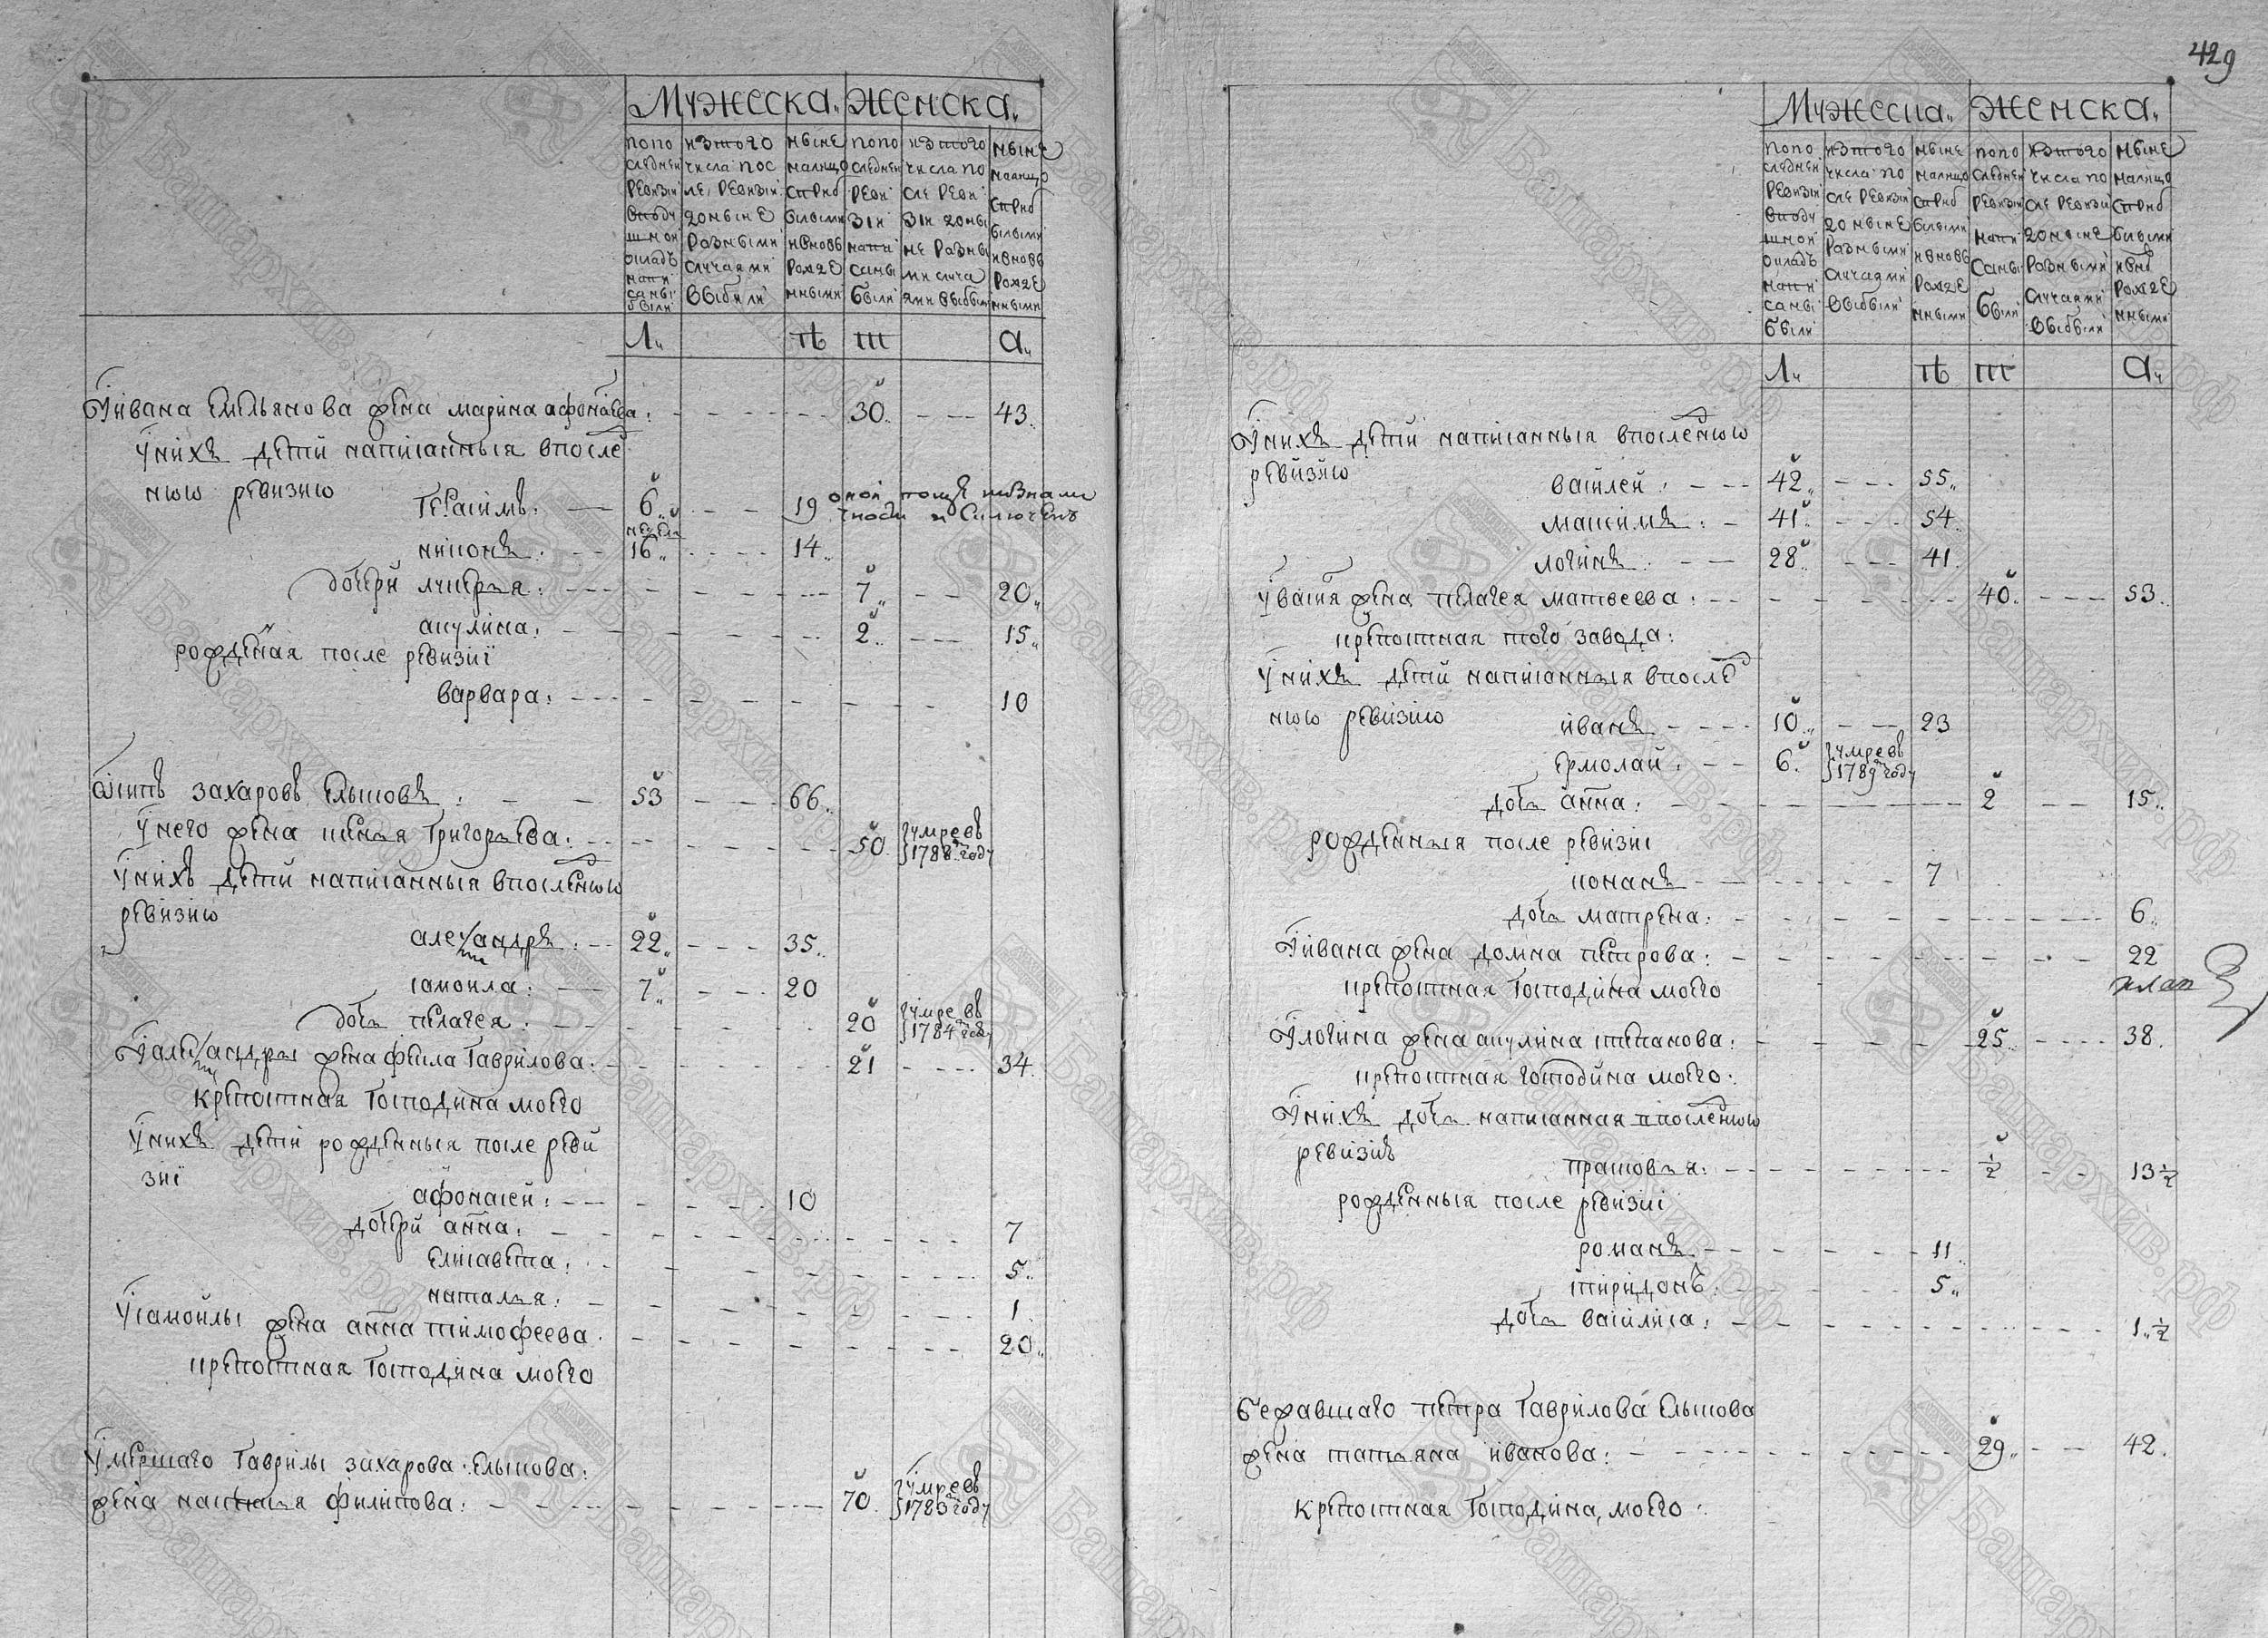 429
Мужеска. Женска.
попо следней ревизии в подушной окладъ написаны были
изтого числа после ревизии до ныне разными случаями выбыли
ныне налицо с прибылыми и вновь рожденными
попо следней ревизии написаны были
изтого числа после ревизии до ныне разными случаями выбыли
ныне налицо с прибылыми и вновь рожденными
Л. ѣ т а.
Уивана Емельянова жена марина афонасева: 30. 43.
Унихъ дети написанныя впосле
нюю ревизию Герасимъ. 6. 19 оной тояже
никонъ. недели 16. 14.
дочери лукерья: 7. 20.
акулина. 2. 15.
рожденая после ревизиї
варвара: 10
Осипъ захаровъ Елшовъ: 53 66.
Унего жена ксенья Григорьева: 50. умре въ 1788 году
Унихъ дети написанныя впоследнюю
ревизию
александръ: 22. 35.
самоила: 7. 20
дочь пелагея. 20 умре въ 1784 году
Уалександры жена фекла Гаврилова: 21 34.
крепостная Господина моего
Унихъ дети рожденныя после реви
зиї
афонасей: 10
дочери анна: 7
Елисавета: 5.
наталья: 1
Усамойлы жена анна тимофеева. 20.
крепостная Господина моего
Умершаго Гаврилы захарова Елшова:
жена настасья филипова: 70. умре въ 1783 году
Мужеска. Женска.
попо следней ревизии в подушной окладъ написаны были
изтого числа после ревизии до ныне разными случаями выбыли
ныне налицо с прибылыми и вновь рожденными
попо следней ревизии написаны были
изтого числа после ревизии до ныне разными случаями выбыли
ныне налицо с прибылыми и вновь рожденными
Л. ѣ т а.
Унихъ дети написанныя впоследнюю
ревизию
василей: 42. 55.
максимъ: 41. 54.
логинъ. 28. 41.
Увасия жена пелагея матвеева: 40. 53.
крепостная того завода:
Унихъ дети написанныя впослед
нюю ревизию иванъ 10. 23
Ермолай. 6. умре въ 1789 году
дочь анна: 2 15.
рожденныя после ревизиї
кононъ 7
дочь матрена: 6.
Уивана жена домна петрова: 22
крепостная Господина моего
Улогина жена акулина степанова: 25. 38.
крепостная господина моего:
Унихъ дочь написанная впоследнюю
ревизиѣ
прасковья: ½ 13 ½
рожденныя после ревизиї
романъ. 11.
спиридонъ: 5.
дочь василиса: 1. ½
бежавшаго петра Гаврилова Елшова
жена татьяна иванова: 29. 42.
крепостная Господина моего:
Башархив.рф